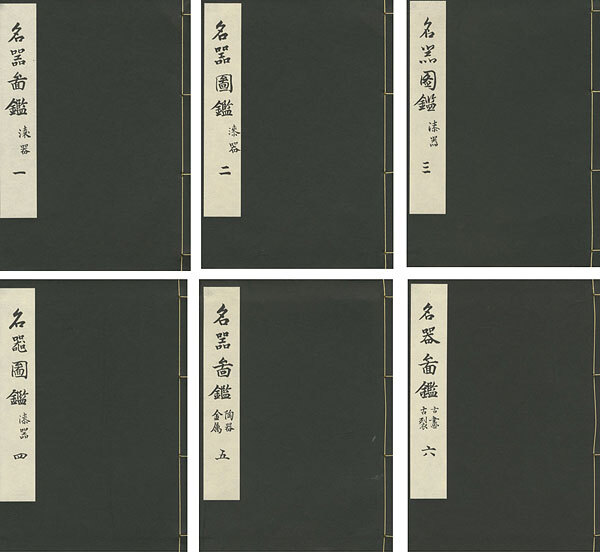 名器啚鑑
漆器
一
名器圖鑑
漆器
二
名器圖鑑
漆器
三
名器圖鑑
漆器
四
名器啚鑑
陶器
金属
五
名器啚鑑
古書
古裂
六